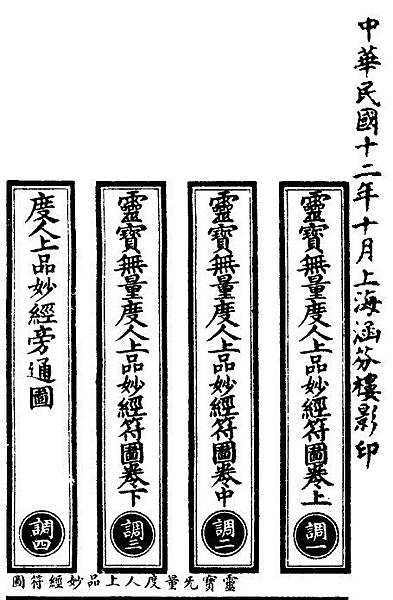 中華民國十二年十月上海涵芬樓影印
靈寶無量度人上品妙經符圖卷上
調一
靈寶無量度人上品妙經符圖卷中
調二
靈寶無量度人上品妙經符圖卷下
調三
度人上品妙經旁通圖
調四
靈寶无量度人上品妙經符圖